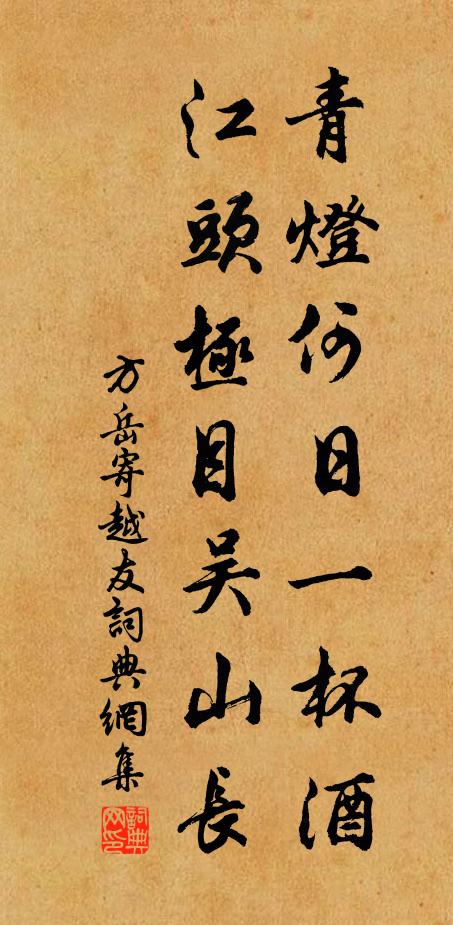 青燈何日一杯酒
江頭極目吳山長
方岳寄越友詞典網集
詞典
网印